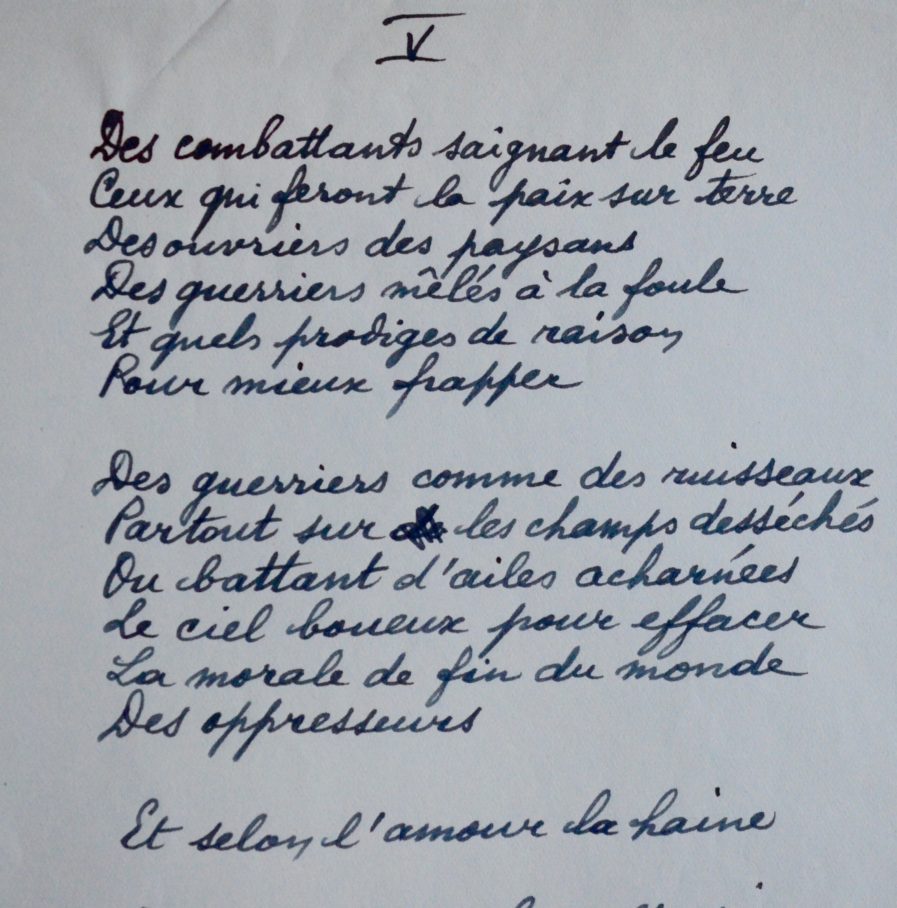 V
Des combattants saignant le feu
Ceux qui feront la paix sur terre
Des ouvriers des paysans
Des guerriers mêlés à la foule
Et quels prodiges de raison
Pour mieux frapper
Des guerriers comme des ruisseaux
Partout sur les champs desséchés
Ou battant d'ailes acharnées
Le ciel boueux pour effacer
La morale de fin du monde
Des oppresseurs
Et selon l'amour la haine